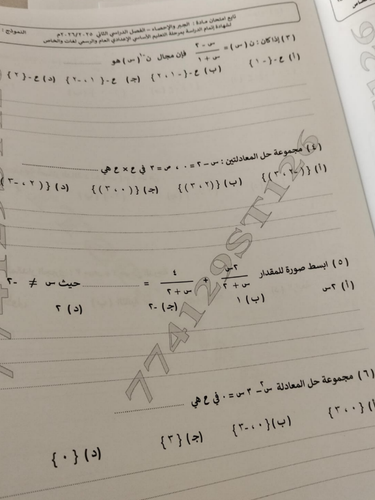 تابع امتحان مادة : الجبر والإحصاء – الفصل الدراسي الثاني ٢٠٢٦/٢٠٢٥م
لشهادة إتمام الدراسة بمرحلة التعليم الأساسي الإعدادي العام والرسمي لغات والخاص
النموذج :
(٣) إذا كان : ن (س) = (س – ٢)/(س + ١) فإن مجال ن⁻¹ (س) هو
(أ) ع – {-١} (ب) ع – {-١، ٢} (جـ) ع – {١، -٢} (د) ع – {٢}
(٤) مجموعة حل المعادلتين : س – ٢ = ٠ ، ص = ٣ في ع × ع هي
(أ) {(-٢، ٣)} (ب) {(٢، ٣)} (جـ) {(٠، ٣)} (د) {(٢، -٣)}
(٥) ابسط صورة للمقدار ٢س/(س + ٢) + ٤/(س + ٢) = حيث س ≠ -٢
(أ) ٢س (ب) ١ (جـ) -٢ (د) ٢
(٦) مجموعة حل المعادلة س² – ٣س = ٠ في ع هي
(أ) {٠، ٣} (ب) {٠، -٣} (جـ) {٣} (د) {٠}
774129STI26